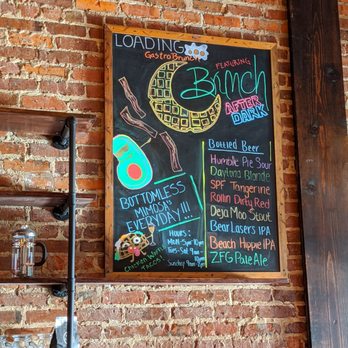 LOADING
GastroBrunch
FEATURING
Brunch
AFTER
DARK
BOTTOMLESS
MIMOSA'S
EVERYDAY!!!
HOURS:
Sunday 9am
CHICKEN WAFFLE
TACOS!
Bottled Beer
Humble Pie Sour
Daytona Blonde
SPF Tangerine
Rollin Dirty Red
Deja Moo Stout
Bear Lasers IPA
Beach Hippie IPA
ZFG Pale Ale